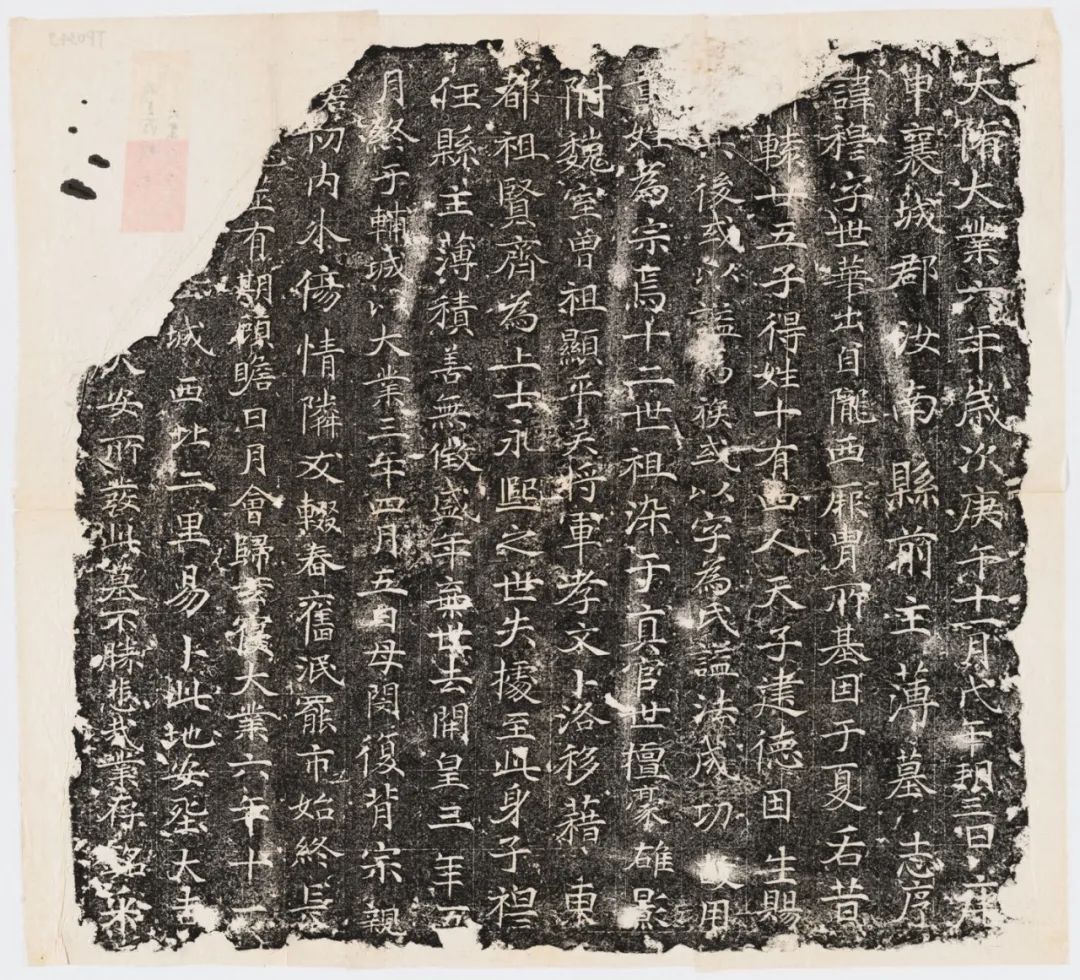 大隋大業六年歲次庚午十一月戊午朔三日庚
申襄城郡汝南縣前主薄墓志序
諱穆字世華出自隴西厥胄所基因于夏后昔
轅廿五子得姓十有四人天子建德因生賜
後或以謚為族或以字為氏謚法成功用
為宗焉十二世祖染于真官世擅豪雄影
附魏室曾祖顯平吴将軍孝文卜洛移藉東
都祖賢齊為上士永熙之世失據至此身子禮
任縣主薄積善無徵盛年棄世去開皇三年五
月終于輔城以大業三年四月五日母関復背宗親
内外傷情隣友輟春舊泯罷市始終長
有期顧瞻日月會歸大業六年十一
城西北二里易卜此地安厝大吉
大安所𦵏此墓不勝悲哉業存銘